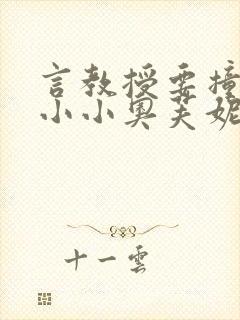 言教授要撞
小小奥芙妮
十一雲